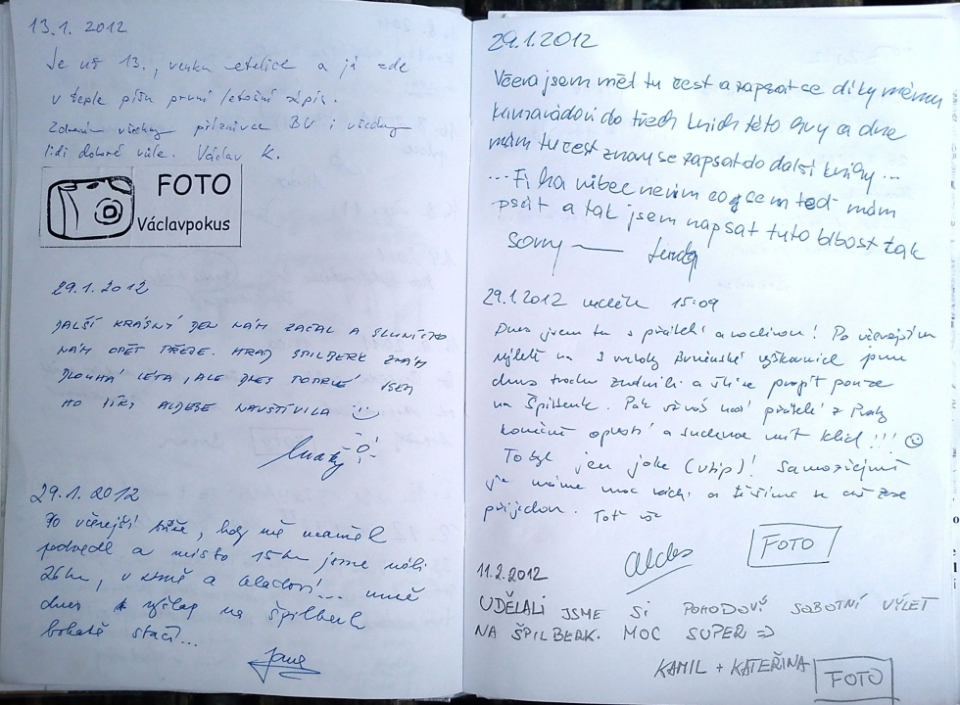 13.1. 2012
Je už 13., venku vtelice a já zde
v teple píšu první letošní zápis.
Zdravím všechny příznivce BV i všechny
lidi dobré vůle. Václav K.
FOTO
Václavpokus
29.1.2012
DALŠÍ KRÁSNÝ DEN NÁM ZAČAL A SLUNÍČKO
NÁM OPĚT HŘEJE. HRAD ŠPILBERK ZNÁM
DLOUHÁ LÉTA, ALE DNES TOPRVÉ JSEM
HO DÍKY ALDEBE NAVŠTÍVILA
29.1.2012
Po včerejší túře, kdy mě manžel
podvedl a místo 15km jsme ušli
26km, v zimě a hladoví!... mně
dnes výšlap na Špilberk
bohatě stačí...
Jana
29.1.2012
Včera jsem měl tu čest a zapsat se díky mému
kamarádovi do třech knih této hry a dnes
mám tu čest znovu se zapsat do další knihy...
...Fí ha vůbec nevím co jsem teď mám
psát a tak jsem napsat tuto blbost tak
Sorry — Jenda
29.1.2012 neděle 15:09
Dnes jsem tu s přáteli a rodinou! Po včerejším
výletě na 3 vrcholy Brněnské vyškovnice jsme
dnes trochu zvolnili a šli se projít pouze
na Špilberk. Pak už nás naši přátelé z Prahy
konečně opustí a budeme mít klid!!! ☺
To byl jen joke (vtip)! Samozřejmě
je máme moc rádi a těšíme se až zase
přijedou. Toť vše
Aldes
FOTO
11.2.2012
UDĚLALI JSME SI POHODOVÝ SOBOTNÍ VÝLET
NA ŠPILBERK. MOC SUPER =)
KAMIL + KATEŘINA
FOTO